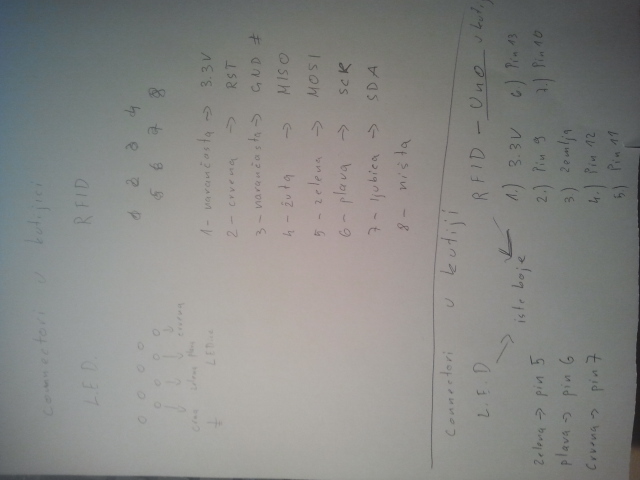 Connectori u kutijici
LED.
RFID
1 2 3 4
5 6 7 8
1 - narančasta → 3.3V
2 - crvena → RST
3 - narančasta → GND
4 - žuta → MISO
5 - zelena → MOSI
6 - plava → SCK
7 - ljubica → SDA
8 - ništa
Connectori u kutiji
L.E.D
→ iste boje
zelena → pin 5
plava → pin 6
crvena → pin 7
RFID - Uno u kutiji
1.) 3.3V
2.) Pin 9
3.) Zemlja
4.) Pin 12
5.) Pin 11
6.) Pin 13
7.) Pin 10